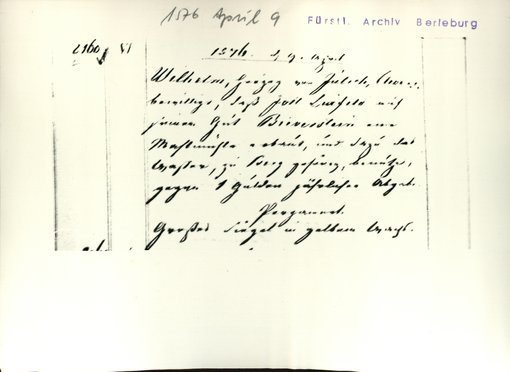 1576 April 9
Fürstl. Archiv Berleburg
2160 VI
1576. d. 9. April
Wilhelm, Herzog von Jülich, Cleve
bewilligt, daß Jost auf
seinem Gut Bierenstein eine
Mahlmühle erbaut, und dazu das
Wasser, zu Berg gehörig, benütze,
gegen 1 Gulden jährlicher Abgabe.
Pergament.
Großes Siegel in gelbem Wachs.